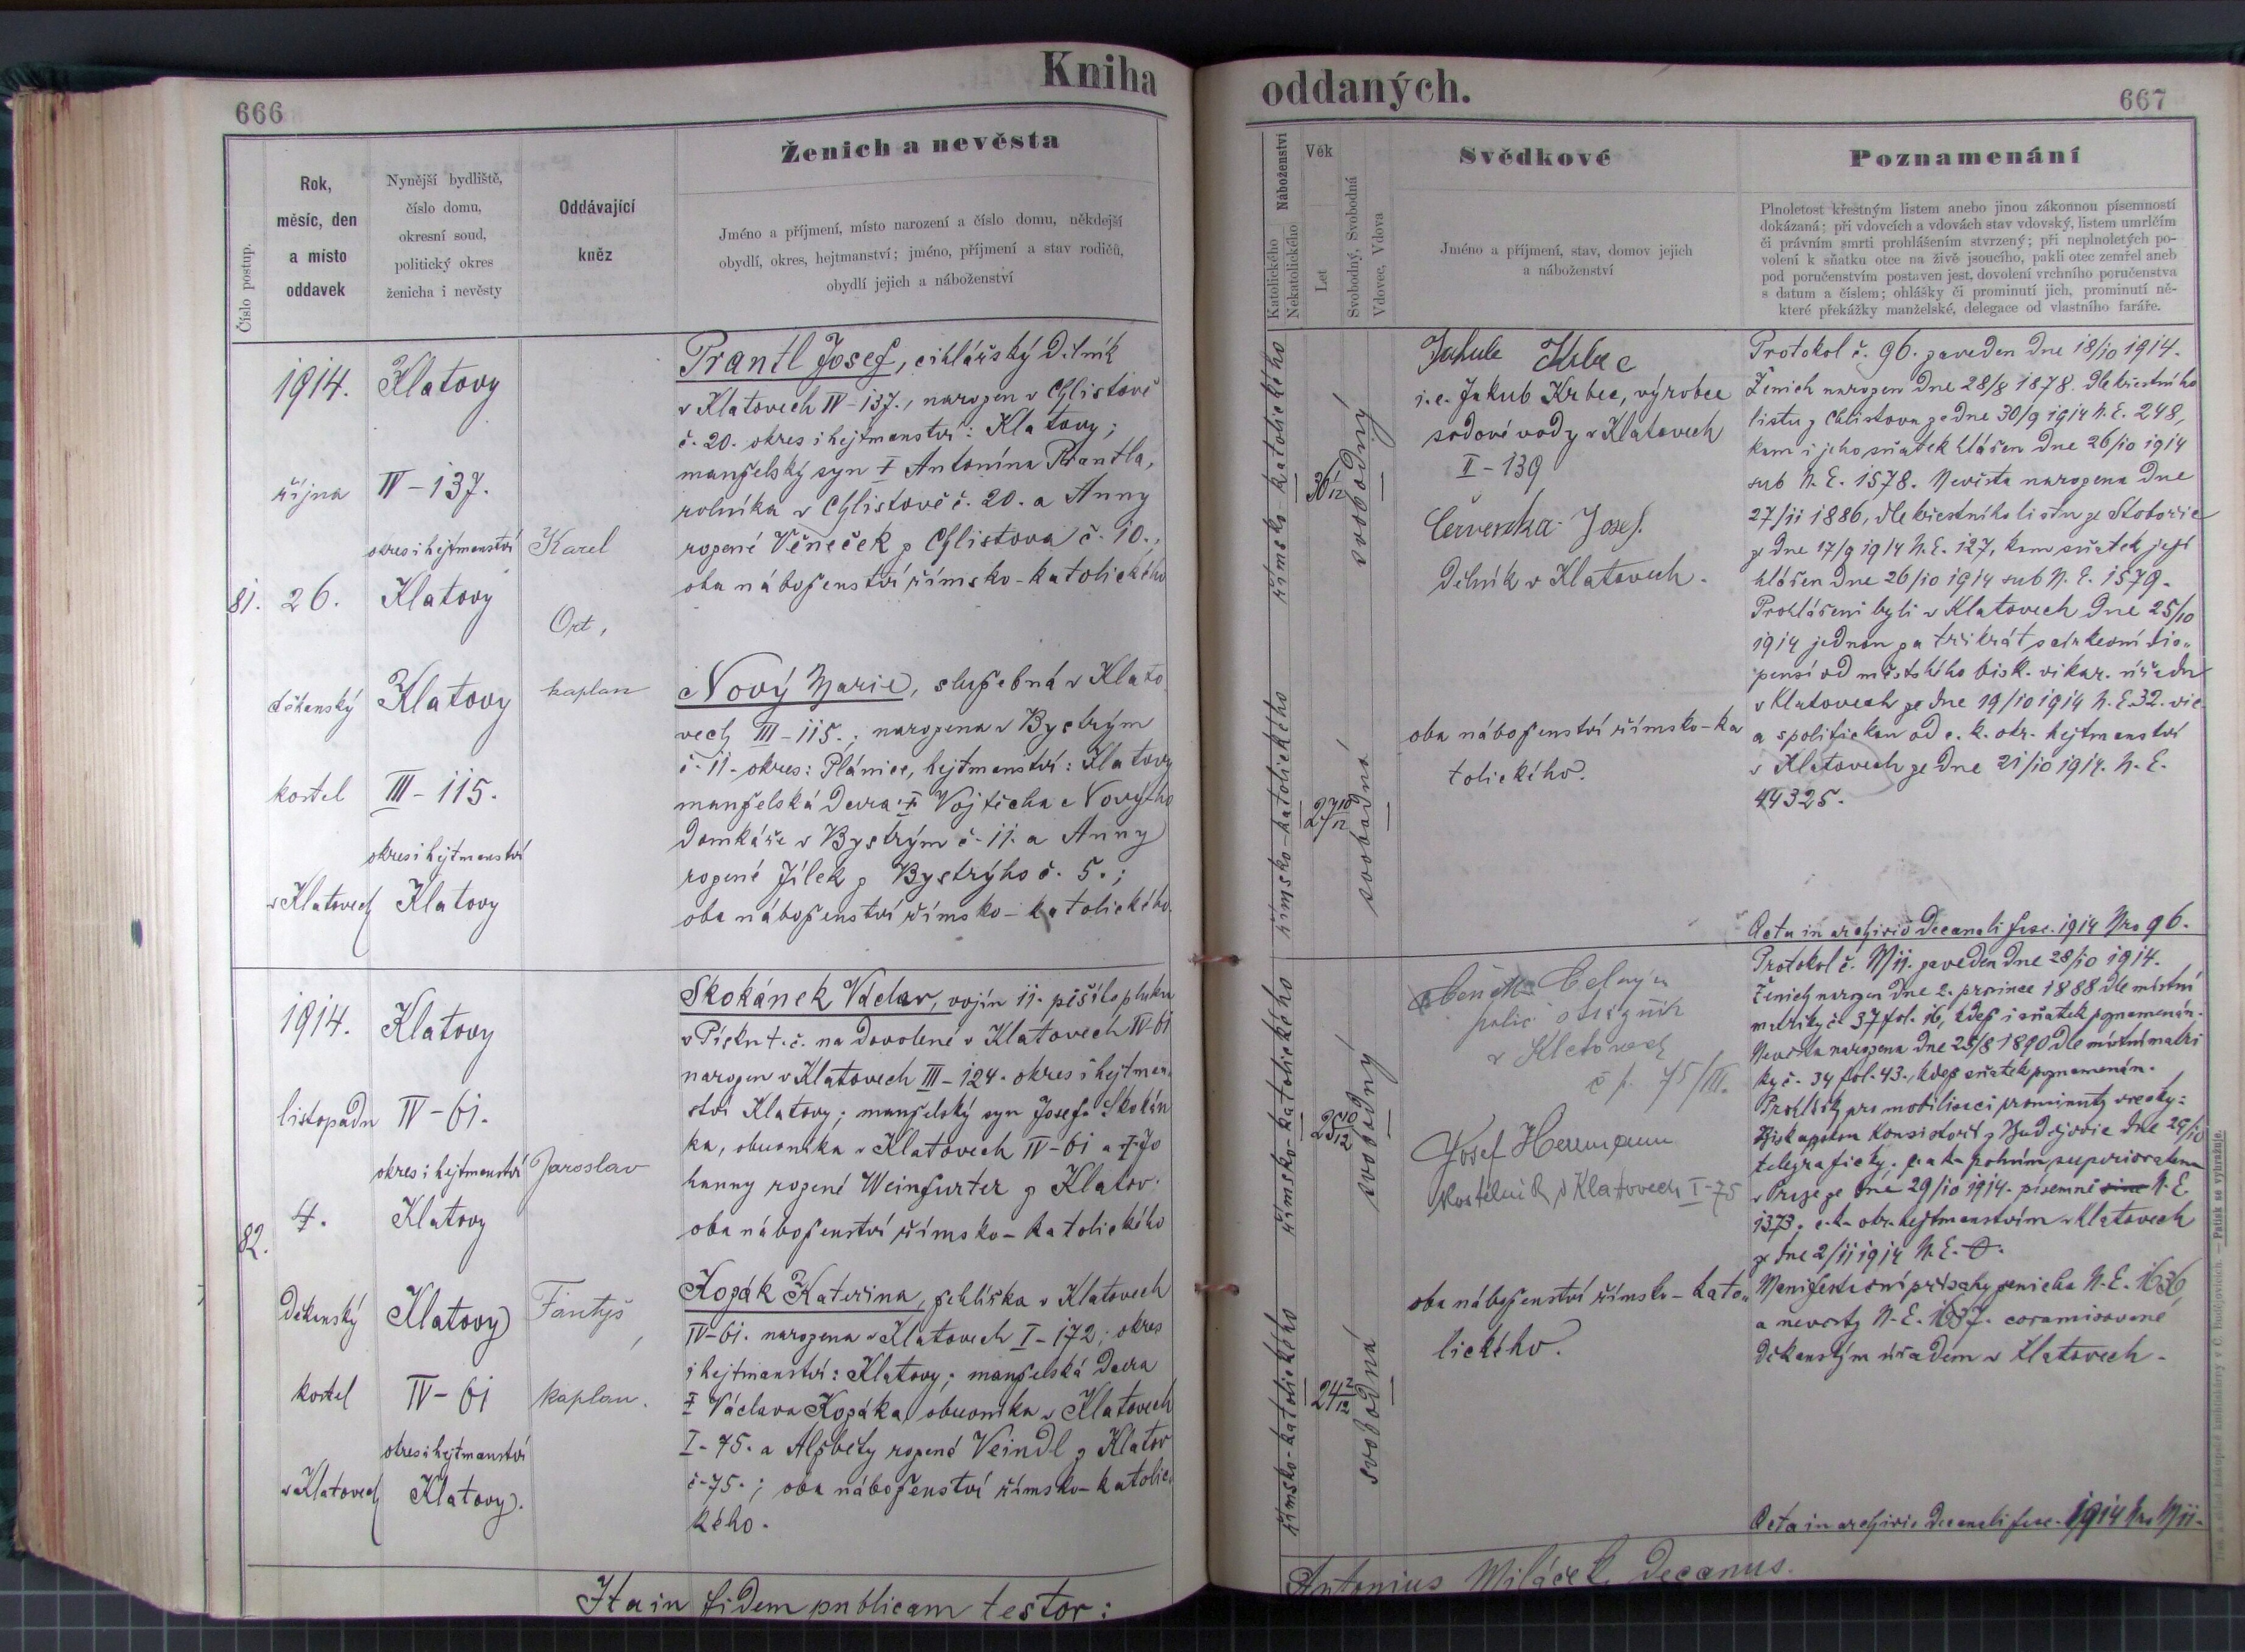 Kniha oddaných.
666
667
Číslo postup.
Rok,
měsíc, den
a místo
oddavek
Nynější bydliště,
číslo domu,
okresní soud,
politický okres
ženicha i nevěsty
Oddávající
kněz
Ženich a nevěsta
Jméno a příjmení, místo narození a číslo domu, někdejší
obydlí, okres, hejtmanství; jméno, příjmení a stav rodičů,
obydlí jejich a náboženství
Náboženství
Katolického
Nekatolického
Věk
Let
Svobodný, Svobodná
Vdovec, Vdova
Svědkové
Jméno a příjmení, stav, domov jejich
a náboženství
Poznamenání
Plnoletost křestným listem anebo jinou zákonnou písemností
dokázaná; při vdovcích a vdovách stav vdovský, listem umrlčím
či právním smrti prohlášením stvrzený; při neplnoletých po-
volení k sňatku otce na živě jsoucího, pakli otec zemřel aneb
pod poručenstvím postaven jest, dovolení vrchního poručenstva
s datum a číslem; ohlášky či prominutí jich, prominutí ně-
které překážky manželské, delegace od vlastního faráře.
81.
1914.
října
26.
děkanský
kostel
v Klatovech
Klatovy
IV-137.
okres i hejtmanství
Klatovy
Klatovy
III-115.
okres i hejtmanství
Klatovy
Karel
Ort,
kaplan
Prantl Josef, cihlářský dělník
v Klatovech IV-137., narozen v Chlistově
č. 20. okres i hejtmanství: Klatovy;
manželský syn † Antonína Prantla,
rolníka v Chlistově č. 20. a Anny
rozené Věneček z Chlistova č. 10.;
oba náboženství římsko-katolického
Nový Marie, služebná v Klato
vech III-115.; narozena v Bystrým
č. 11. okres: Plánice, hejtmanství: Klatovy
manželská dcera † Vojtěcha Novýho
domkáře v Bystrým č. 11. a Anny
rozené Jílek z Bystrýho č. 5.;
oba náboženství římsko-katolického.
římsko katolického
36 1/12
svobodný
římsko-katolického
27 10/12
svobodná
Jakub Krbec
i. e. Jakub Krbec, výrobce
sodové vody v Klatovech
II-139
Červenka Josef.
Dělník v Klatovech.
oba náboženství římsko-ka
tolického.
Protokol č. 96. zaveden dne 18/10 1914.
Ženich narozen dne 28/8 1878. dle křestního
listu z Chlistova ze dne 30/9 1914 N. E. 248,
kam i jeho sňatek hlášen dne 26/10 1914
sub N. E. 1578. Nevěsta narozena dne
27/11 1886, dle křestního listu ze
ze dne 17/9 1914 N. E. 127, kam sňatek její
hlášen dne 26/10 1914 sub N. E. 1579.
Prohlášeni byli v Klatovech dne 25/10
1914 jednou za třikrát s církevní dis-
pensí od městského bisk. vikar. úřadu
v Klatovech ze dne 19/10 1914 N. E. 32. vic
a s politickou od c. k. okr. hejtmanství
v Klatovech ze dne 21/10 1914. N. E.
44325.
Acta in archivio decanali fasc. 1914 Nro 96.
82.
1914.
listopadu
4.
Děkanský
kostel
v Klatovech
Klatovy
IV-61.
okres i hejtmanství
Klatovy
Klatovy
IV-61
okres i hejtmanství
Klatovy.
Jaroslav
Fantyš,
kaplan.
Skokánek Václav, vojín 11. pěšího pluku
v Písku t. č. na dovolené v Klatovech IV-61
narozen v Klatovech III-124. okres i hejtman
ství Klatovy; manželský syn Josefa Skokán
ka, obuvníka v Klatovech IV-61 a † Jo
hanny rozené Weinfurter z Klatov.
oba náboženství římsko-katolického
Kozák Kateřina, žehlířka v Klatovech
IV-61. narozena v Klatovech I-172; okres
i hejtmanství: Klatovy; manželská dcera
† Václava Kozáka, obuvníka v Klatovech
I-75. a Alžběty rozené Veindl z Klatov
č. 75.; oba náboženství římsko-katolic-
kého.
římsko-katolického
25 10/12
svobodný
římsko-katolického
24 2/12
svobodná
polic. strážník
v Klatovech
č p. 75/III.
Josef Herrmann
kostelník v Klatovech I-75
oba náboženství římsko-kato-
lického.
Protokol č. 111. zaveden dne 28/10 1914.
Ženich narozen dne 2. prosince 1888 dle místní
matriky č. 37 fol. 16, kdež i sňatek poznamenán.
Nevěsta narozena dne 25/8 1890 dle místní matri
ky č. 34 fol. 43., kdež sňatek poznamenán.
Prohlášky pro mobilisaci prominuty vesky:
Biskupskou Konsistoří z Budějovic dne 29/10
telegraficky; c. a k. polním superiorátem
v Praze ze dne 29/10 1914. písemně sine N. E.
1373; c. k. okr. hejtmanstvím v Klatovech
ze dne 2/11 1914 N. E.
Manifestační přísahy ženicha N. E. 1636,
a nevěsty N. E. 1637. coramisované
Děkanským úřadem v Klatovech.
Acta in archivio decanali fasc. 1914 Nro 111.
Ita in fidem publicam testor:
Antonius Miláček, Decanus.